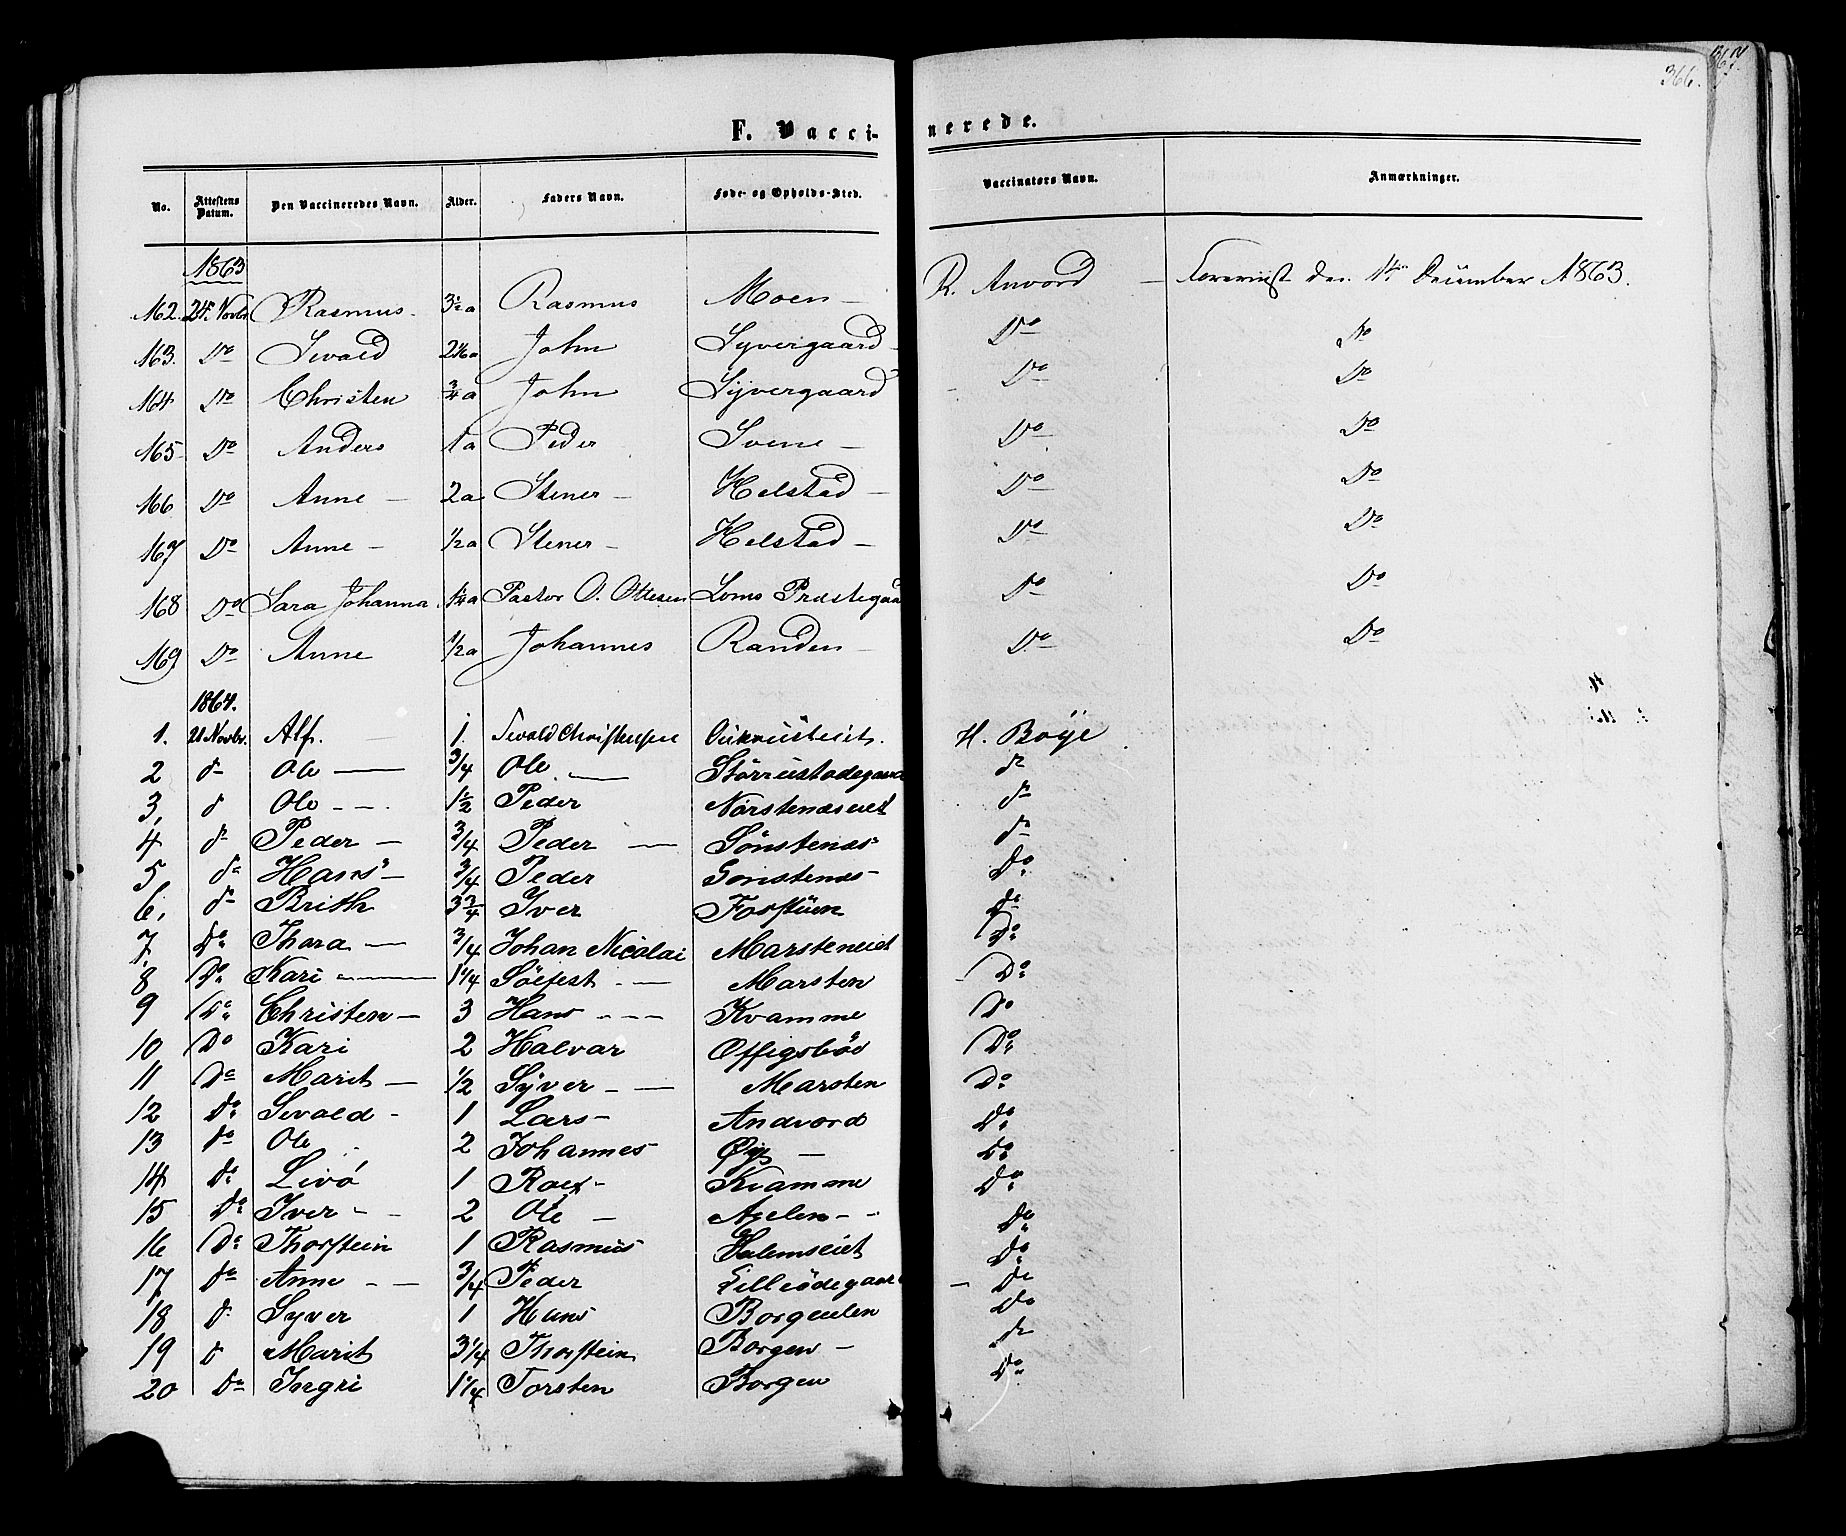 366.
367.
F. Vacci- nerede.
No. Attestens Datum. Den Vaccineredes Navn. Alder. Faders Navn. Føde- og Opholds-Sted. Vaccinators Navn. Anmærkninger.
1863
162. 24. Novbr Rasmus. 3½a Rasmus Moen – R. Anvord – den 14 December 1863.
163. Do Sivald John Syvergaard – Do Do
164 Do Christen ¾a John Syvergaard Do Do
165 Do Anders 1a Peder Svene – Do Do
166 Do Anne – 2a Stener – Helstad – Do Do
167 Do Anne – 1/2a Stener – Helstad – Do Do
168 Do Sara Johanna 1¼a Pastor O. Ottesen Loms Præstegaa Do Do
169 Do Anne 1/2a Johannes Randen – Do Do
1864.
1. 21 Novbr. Alf. – 1. Sivald Christensen H. Boye
2 d– Ole – 3/4 Ole – Störrustadegaard do
3, d Ole – – 1½ Peder Norstenæseiet do
4 do Peder – 3/4 Peder – Sønstenæs do
5 do Hans – 3/4 Peder Sønstenæs – Do
6, d– Brith 3¾ Iver Do
7, Do Thora – 3/4 Johan Nicolai Marsteneiet Do
8 Do Kari – 1¼ Sölfest – Marsten – Do
9 Do Christen – 3 Hans – – – Kvamme Do
10 Do Kari 2 Halvar Offigsbød Do
11 Do Marit – 1/2 Syver – – Marsten Do
12 Do Sivald – 1 Lars – Andvord Do
13 do Ole 2 Johannes – Øye – Do
14 do Livø 1 Roef – Kvamme Do
15 Do Iver – – 2 Ole – – – Do
16 Do Thorstein 1 Rasmus Do
17 Do Anne – – 3/4 Peder Lilliödegaard – Do
18 d– Syver 1 Hans Do
19 d Marit 3¼ Thorstein Borgen – do
20 Do Ingri 1¼ Torsten Borgen Do